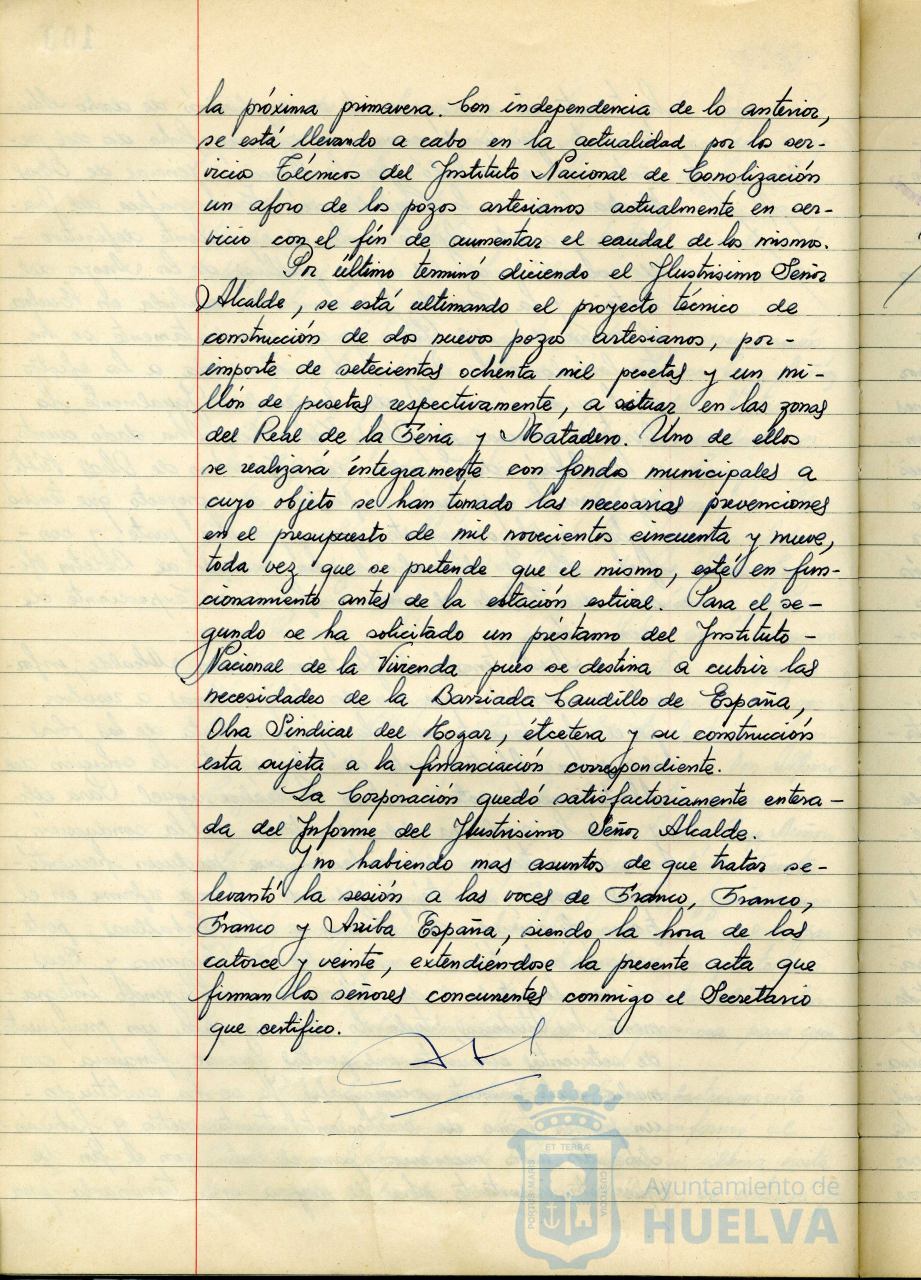 la próxima primavera. Con independencia de lo anterior,
se está llevando a cabo en la actualidad por los ser-
vicios Técnicos del Instituto Nacional de Conolización
un aforo de los pozos artesianos actualmente en ser-
vicio con el fín de aumentar el caudal de los mismos.
Por último terminó diciendo el Ilustrisimo Señor
Alcalde, se está ultimando el proyecto técnico de
construcción de dos nuevos pozos artesianos, por-
importe de setecientas ochenta mil pesetas y un mi-
llón de pesetas respectivamente, a situar en las zonas
del Real de la Feria y Matadero. Uno de ellos
se realizará íntegramente con fondos municipales a
cuyo objeto se han tomado las necesarias prevenciones
en el presupuesto de mil novecientos cincuenta y nueve,
toda vez que se pretende que el mismo, esté en fun-
cionamiento antes de la estación estival. Para el se-
gundo se ha solicitado un préstamo del Instituto-
Nacional de la Vivienda pues se destina a cubrir las
necesidades de la Barriada Caudillo de España,
Obra Sindical del Hogar, étcetera y su construcción
esta sujeta a la financiación correspondiente.
La Corporación quedó satisfactoriamente entera-
da del Informe del Ilustrisimo Señor Alcalde.
Y no habiendo mas asuntos de que tratar se-
levantó la sesión a las voces de Franco, Franco,
Franco y Arriba España, siendo la hora de las
catorce y veinte, extendiéndose la presente acta que
firman los señores concurrentes conmigo el Secretario
que certifico.
ET TERRÆ
PORTUS MARIS
CUSTODIA
Ayuntamiento de
HUELVA